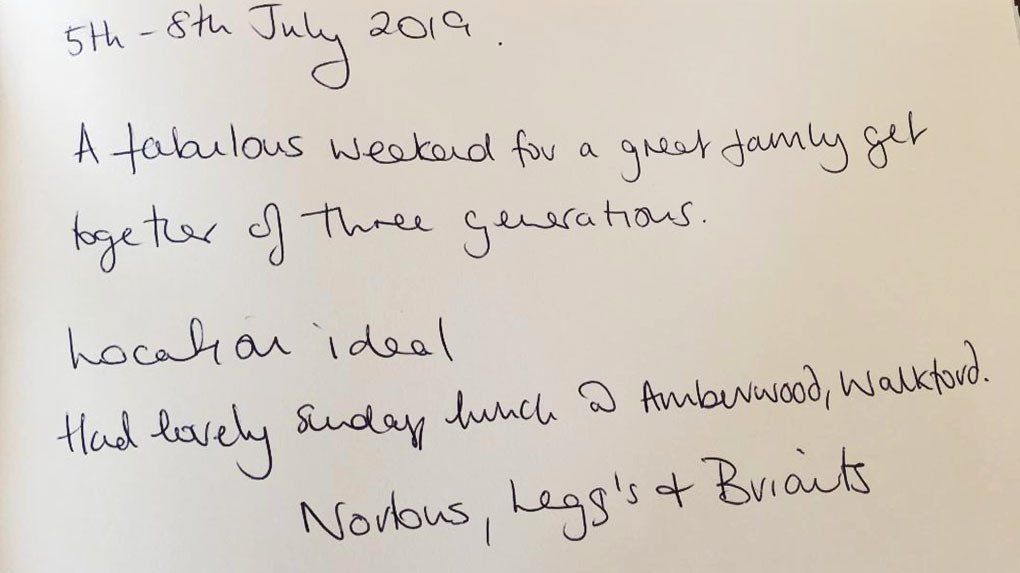 5th - 8th July 2019.
A fabulous weekend for a great family get
together of three generations.
Location ideal
Had lovely Sunday lunch @ Amberwood, Walkford.
Nortons, Legg's +